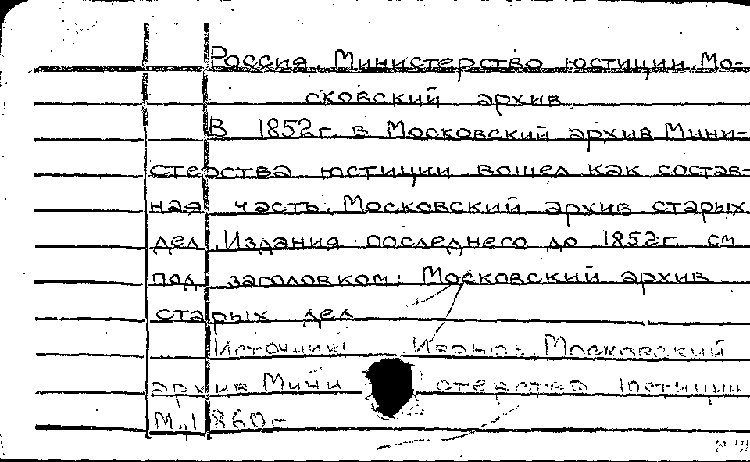 Россия. Министерство юстиции. Мо-
сковский архив
В 1852г. в Московский архив Мини-
стерства юстиции вошел как состав-
ная часть: Московский архив старых
дел. Издания последнего до 1852г. см
под заголовком: Московский архив
старых дел
Источник: Иванов. Московский
архив Мини стерства юстиции
М., 1860.-